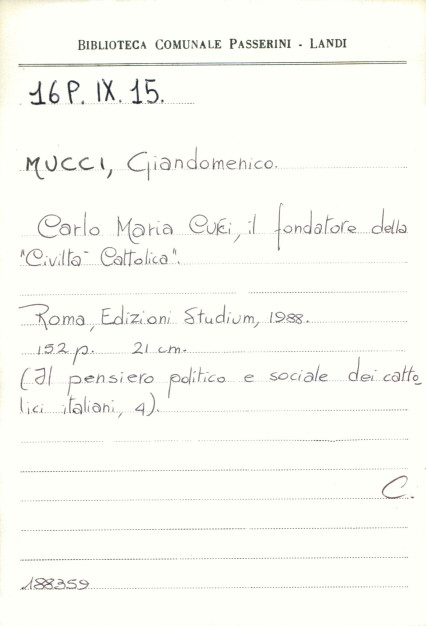 BIBLIOTECA COMUNALE PASSERINI - LANDI
16 P. IX. 15.
MUCCI, Giandomenico.
Carlo Maria Curci, il fondatore della
"Civiltà Cattolica".
Roma, Edizioni Studium, 1988.
152 p. 21 cm.
(Il pensiero politico e sociale dei catto_
lici italiani, 4).
C.
188359